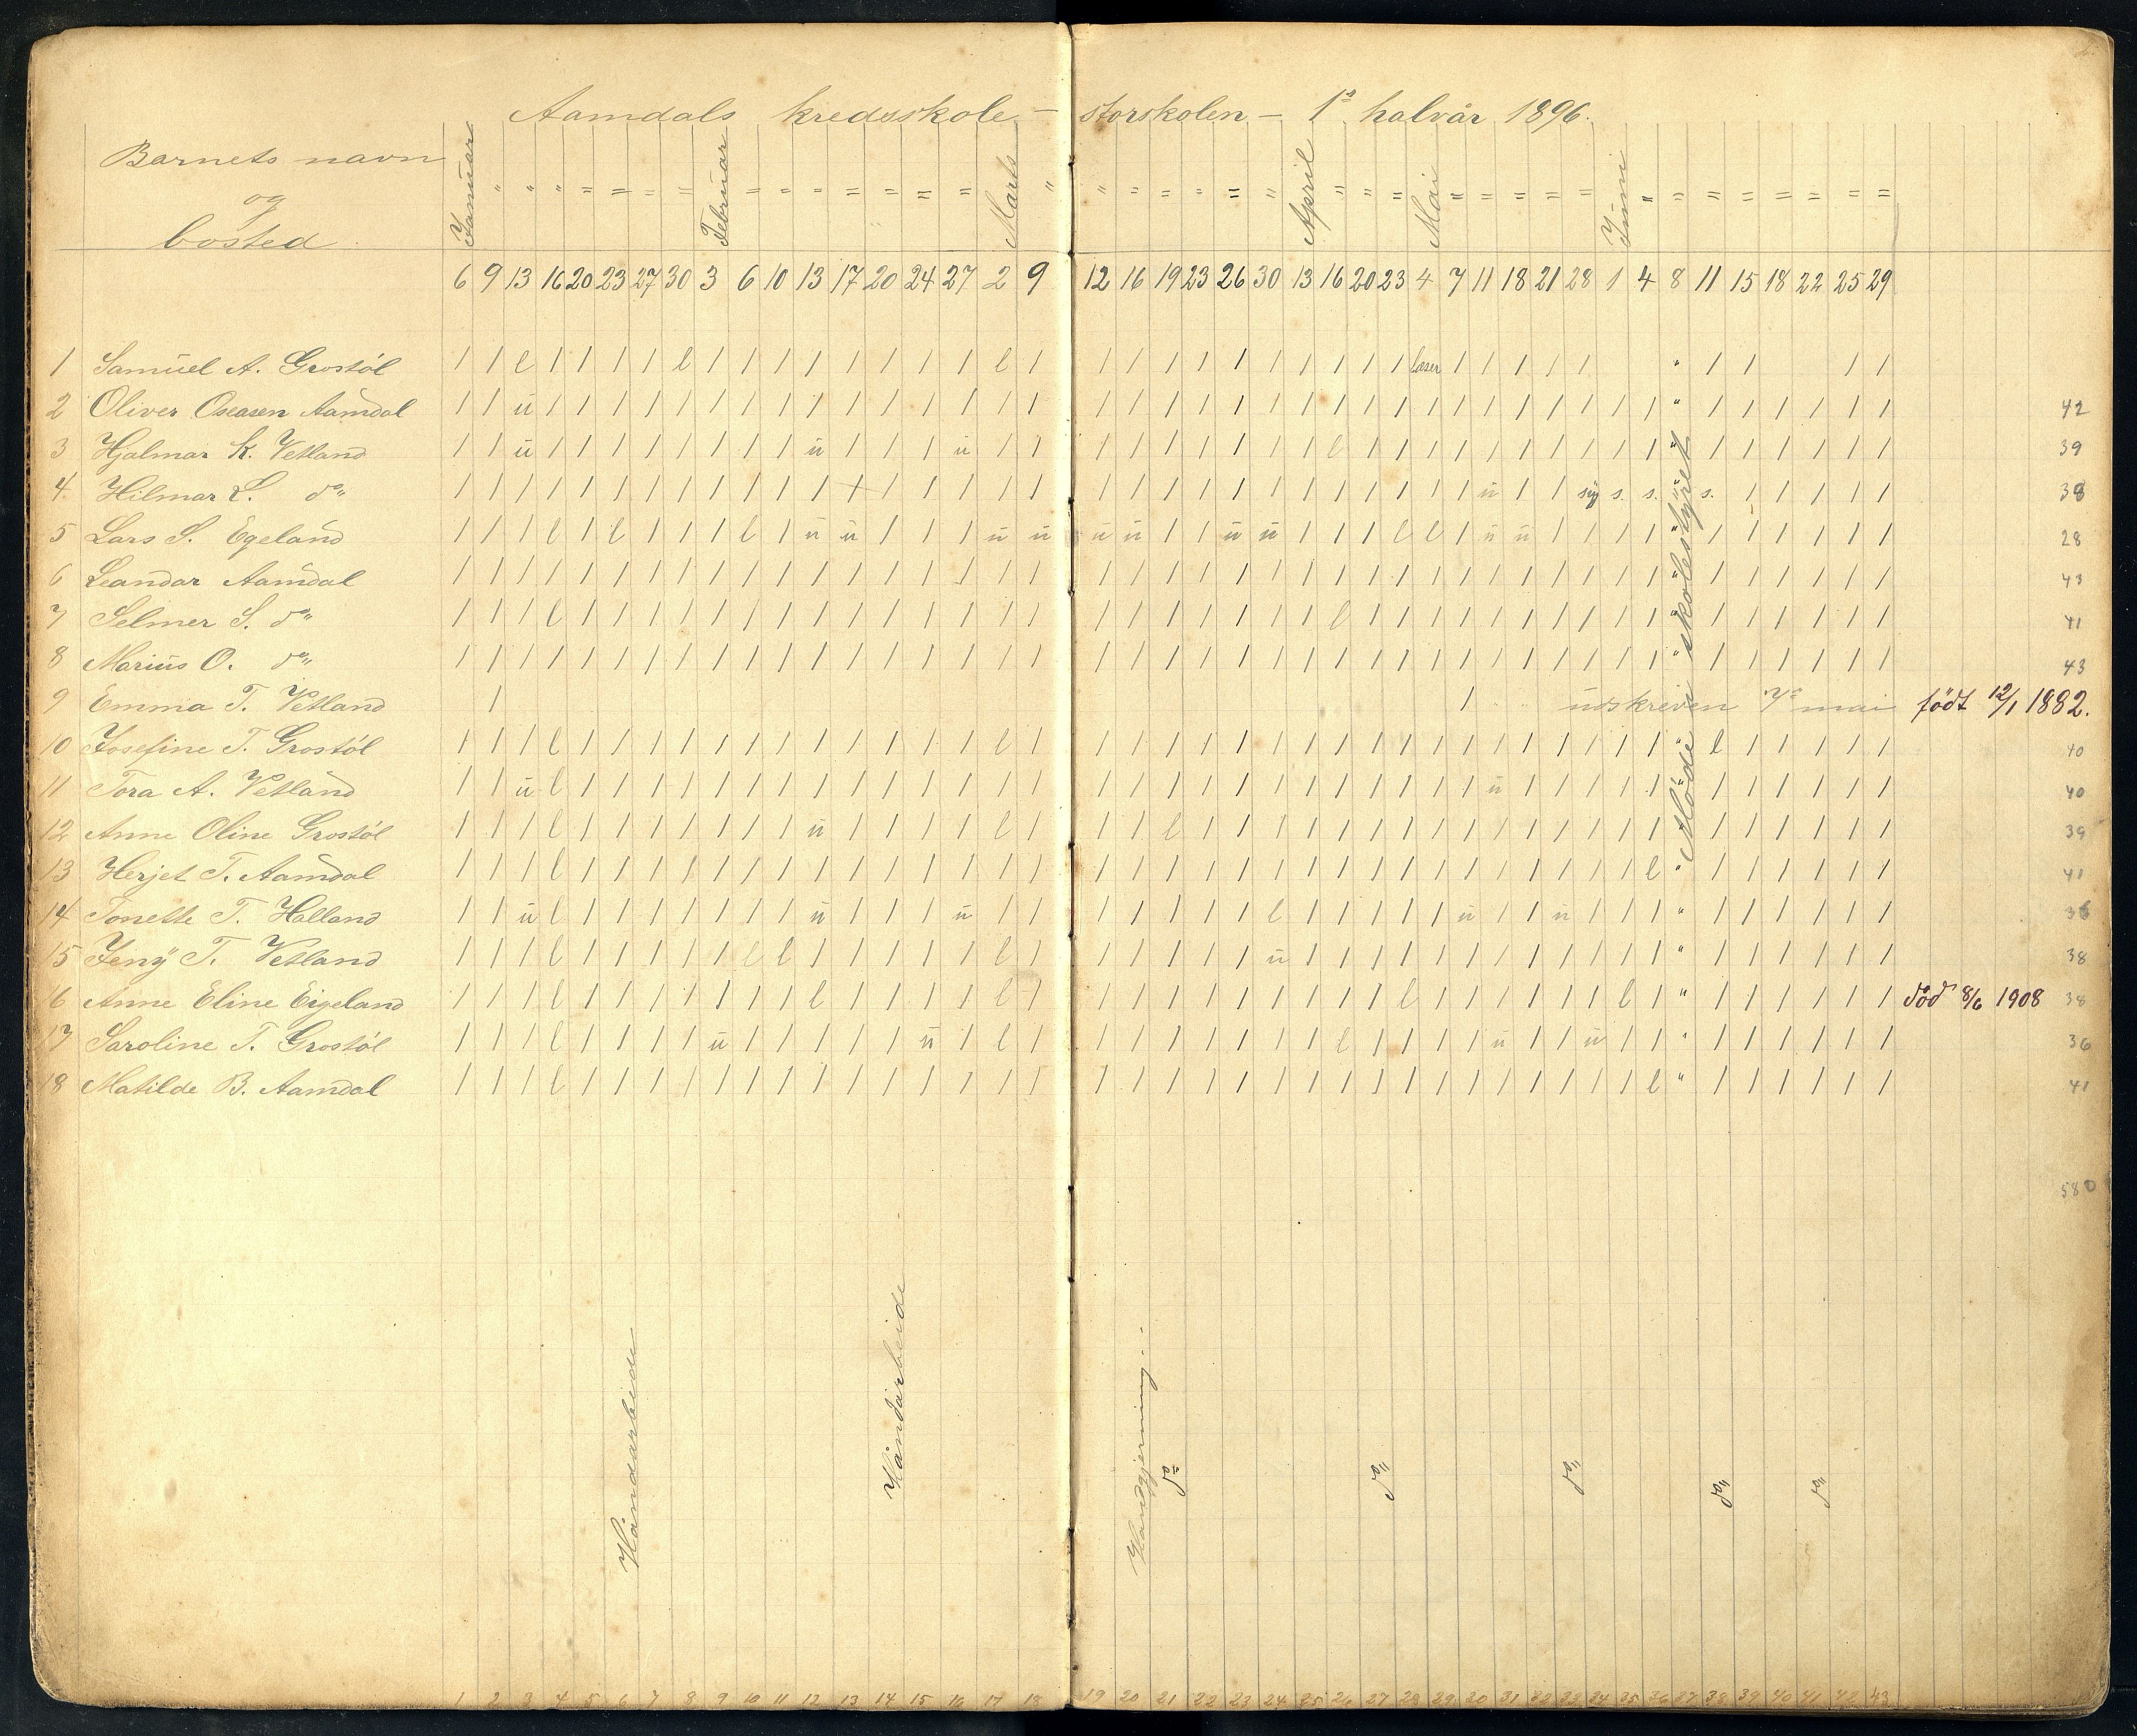 Aamdals kredsskole – storskolen – 1ste halvår 1896.
Barnets navn
og
bosted
Januar " " " = = = = Februar = = = = = = = Marts " " = = = = " April " " = Mai = = = = = Juni " = = = = = = =
6 9 13 16 20 23 27 30 3 6 10 13 17 20 24 27 2 9 12 16 19 23 26 30 13 16 20 23 4 7 11 18 21 28 1 4 8 11 15 18 22 25 29
1 Samuel A. Grostöl / / l / / / / l / / / / / / / / l / / / / / / / / / / / læser / / / / / " / / / /
2 Oliver Oseasen Aamdal / / u / / / / / / / / / / / / / / / / / / / / / / / / / / / / / / / / / " / / / / / / 42
3 Hjalmar K. Vetland / / u / / / / / / / / u / / / u / / / / / / / / / l / / / / / / / / / / " / / / / / / 39
4. Hilmar L. do" / / / / / / / / / / / / + / / / / / / / / / / / / / / / / / u / / syg s. s. " s. / / / / / 38
5 Lars S. Egeland / / / l / l / / / l / u u / / / u u u u / / u u / / / l l / u u / / / / " / / / / / / 28
6 Leandar Aamdal / / / / / / / / / / / / / / / / / / / / / / / / / / / / / / / / / / / / " / / / / / / 43
7 Selmer S. do" / / / l / / / / / / / / / / / / / / / / / / / / / l / / / / / / / / / / " / / / / / / 41
8 Marius O. do" / / / / / / / / / / / / / / / / / / / / / / / / / / / / / / / / / / / / " / / / / / / 43
9 Emma T. Vetland / / udskreven 7de mai født 12/1 1882.
10 Josefine T. Grostöl / / / l / / / / / / / / / / / / l / / / / / / / / / / / / / / / / / / / l / / / / / 40
11 Tora A. Vetland / / u l / / / / / / / / / / / / / / / / / / / / / / / / / / u / / / / / / / / / / / 40
12 Anne Oline Grostöl / / / l / / / / / / / u / / / / l / / / l / / / / / / / / / / / / / / / / / / / / / 39
13 Herjet T. Aamdal / / / l / / / / / / / / / / / / / / / / / / / / / / / / / / / / / / / l " / / / / / / 41
14 Tonette T. Halland / / u l / / / / / / / u / / / u / / / / / / / l / / / / / u / / u / / / " / / / / / / 36
15 Jeny T. Vetland / / / l / / / / / l l / / / / / l / / / / / / u / / / / / / / / / / / / " / / / / / / 38
16 Anne Eline Eigeland / / / l / / / / / / / l / / / / l / / / / / / / / / / l / / / / / / l / " / / / / / / død 8/6 1908 38
17 Saroline T. Grostöl / / / l / / / / u / / / / / u / l / / / / / / / / l / / / / u / / u / / " / / / / / / 36
18 Matilde B. Aamdal / / / l / / / / / / / / / / / / / / / / / / / / / / / / / / / / / / / l " / / / / / / 41
Møde i skolestyret
580
Håndarbeide
Håndarbeide
Håndgjerning
do"
do"
do"
do"
do"
1 2 3 4 5 6 7 8 9 10 11 12 13 14 15 16 17 18 19 20 21 22 23 24 25 26 27 28 29 30 31 32 33 34 35 36 37 38 39 40 41 42 43